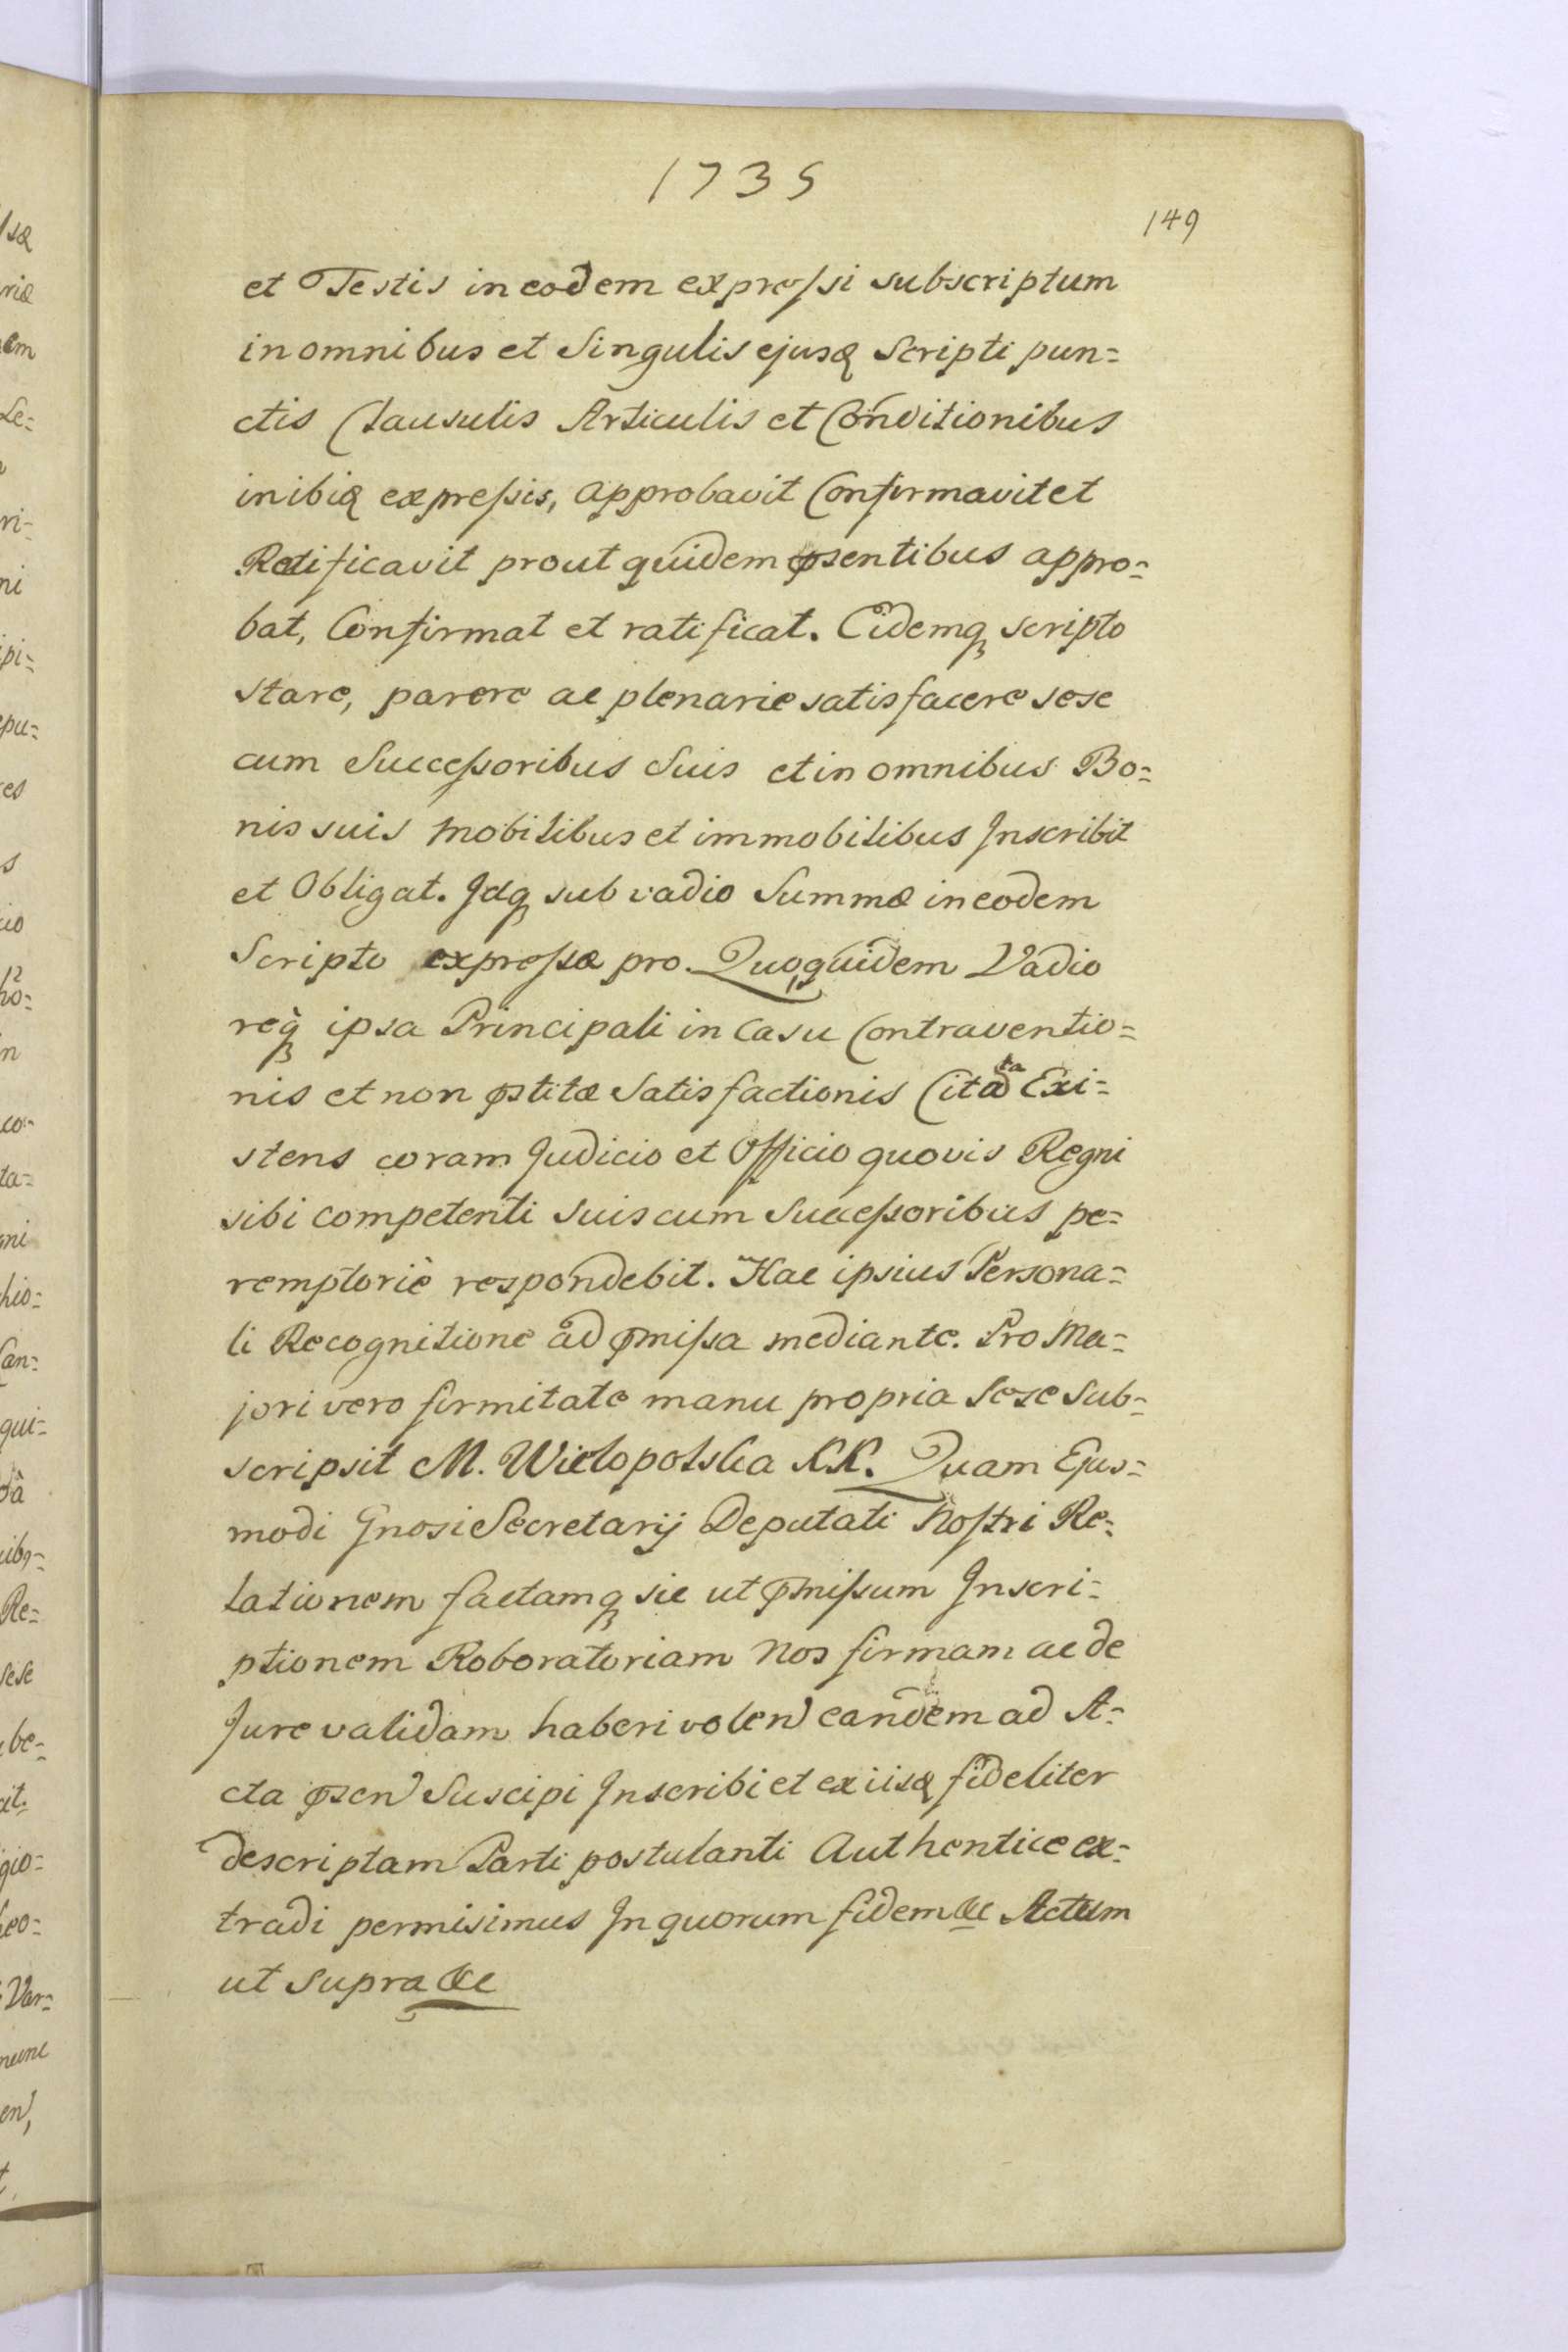 1735
149
et Testis in eodem expressi subscriptum
in omnibus et Singulis ejusq Scripti pun=
ctis Clausulis Articulis et Conditionibus
inibiq expressis, approbavit Confirmavit et
Ratificavit prout quidem pſentibus appro=
bat, Confirmat et ratificat. Eidemq scripto
stare, parere ac plenarie satisfacere sese
cum Successoribus Suis et in omnibus Bo=
nis suis mobilibus et immobilibus Inscribit
et Obligat. Idq sub vadio Summæ in eodem
Scripto expressæ pro. Quo quidem Vadio
req̀ ipsa Principali in Casu Contraventio=
nis et non pstitæ Satisfactionis Citata Exi=
stens coram Judicio et Officio quovis Regni
sibi competenti suis cum Successoribus pe=
remptoriè respondebit. Hac ipsius Persona=
li Recognitione ad pmissa mediante. Pro Ma=
jori vero firmitate manu propria Sese Sub=
scripsit M. Wielopolska KK. Quam Ejus=
modi Gnosi Secretarij Deputati Nostri Re=
lationem factamq sic ut pmissum Inscri=
ptionem Roboratoriam Nos firmam ac de
Jure validam haberi volen eandem ad A=
cta psen Suscipi Inscribi et ex iisq fideliter
descriptam Parti postulanti Authentice ex=
tradi permisimus In quorum fidem &c Actum
ut supra &c